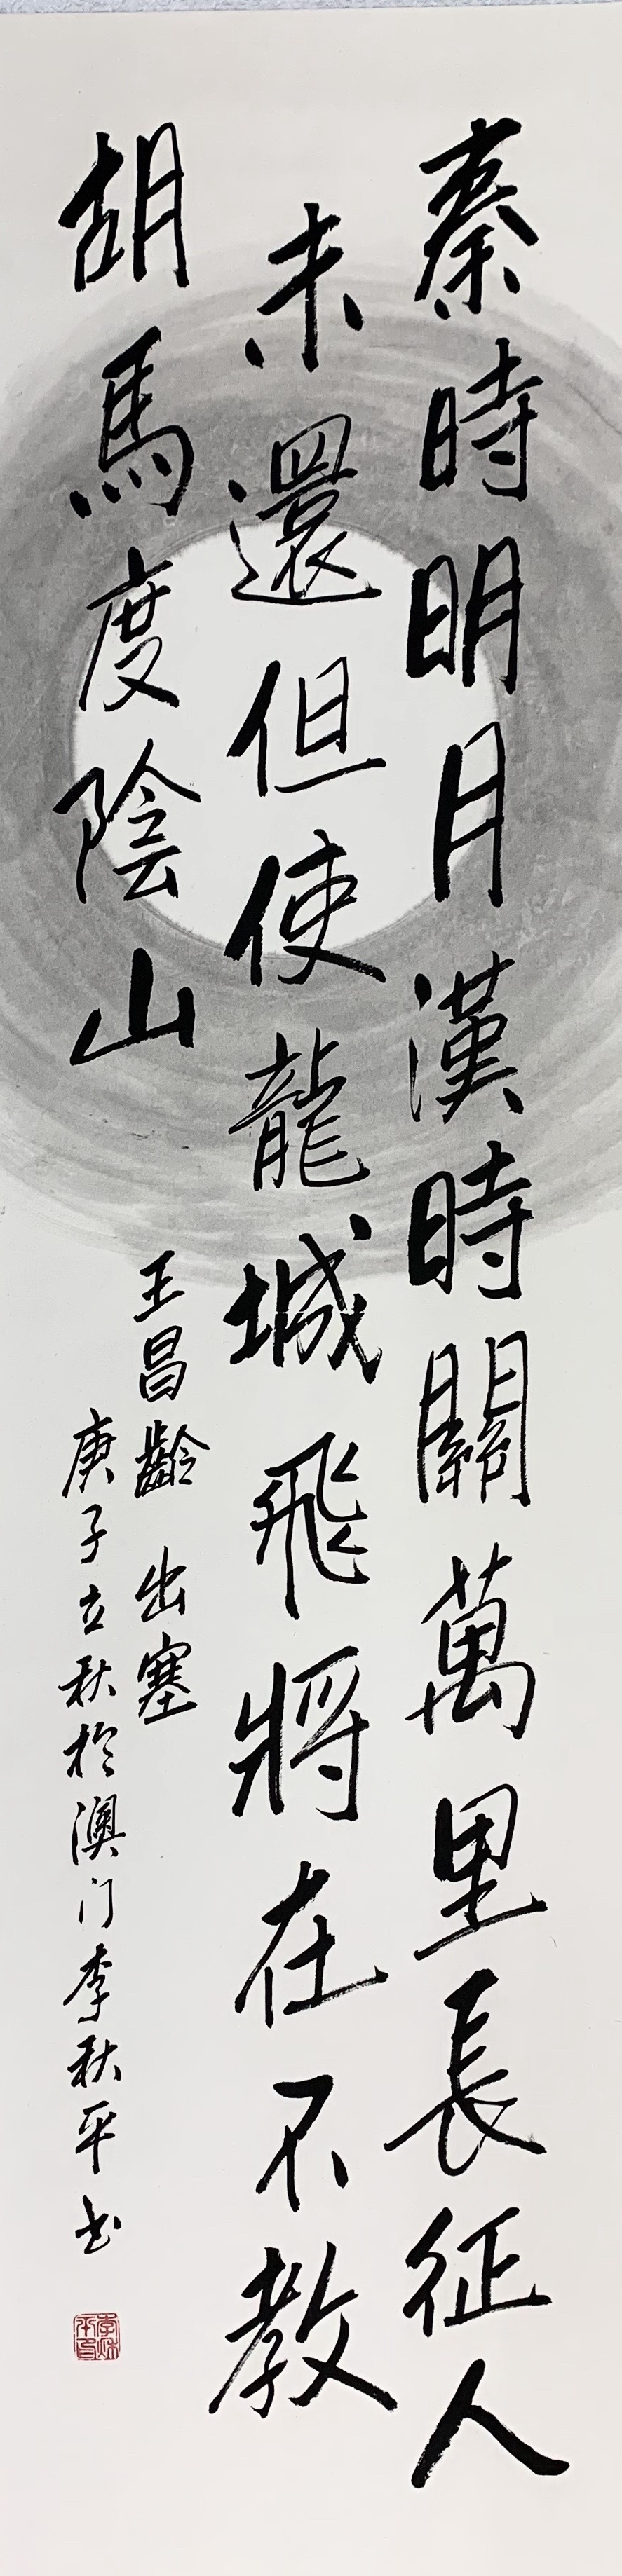 秦時明月漢時關萬里長征人
未還但使龍城飛將在不教
胡馬度陰山
王昌齡 出塞
庚子立秋於澳门李秋平书